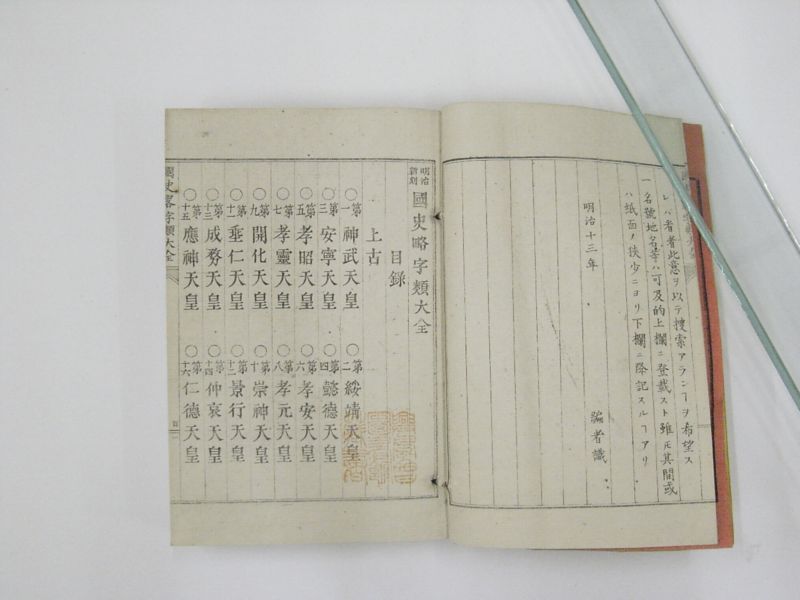 レバ看者此意ヲ以テ捜索アランヿヲ希望ス
一名號地名等ハ可及的上欄ニ登載スト雖モ其間或
ハ紙面ノ狭少ニヨリ下欄ニ降記スルヿアリ
明治十三年
編者識
明治新刻
國史略字類大全
目録
上古
○第一神武天皇
○第二綏靖天皇
○第三安寧天皇
○第四懿德天皇
○第五孝昭天皇
○第六孝安天皇
○第七孝靈天皇
○第八孝元天皇
○第九開化天皇
○第十崇神天皇
○第十一垂仁天皇
○第十二景行天皇
○第十三成務天皇
○第十四仲哀天皇
○第十五應神天皇
○第十六仁德天皇
國史略字類大全